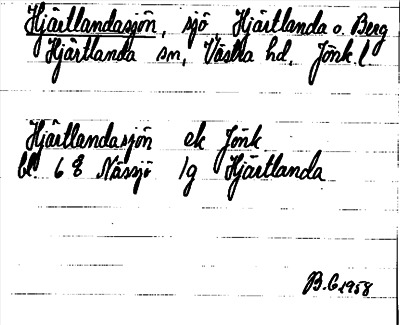 Hjärtlandasjön, sjö, Hjärtlanda o. Berg
Hjärtlanda sn, Västra hd, Jönk. l.
Hjärtlandasjön ek Jönk
bl 68 Nässjö lg Hjärtlanda
B.G 1958